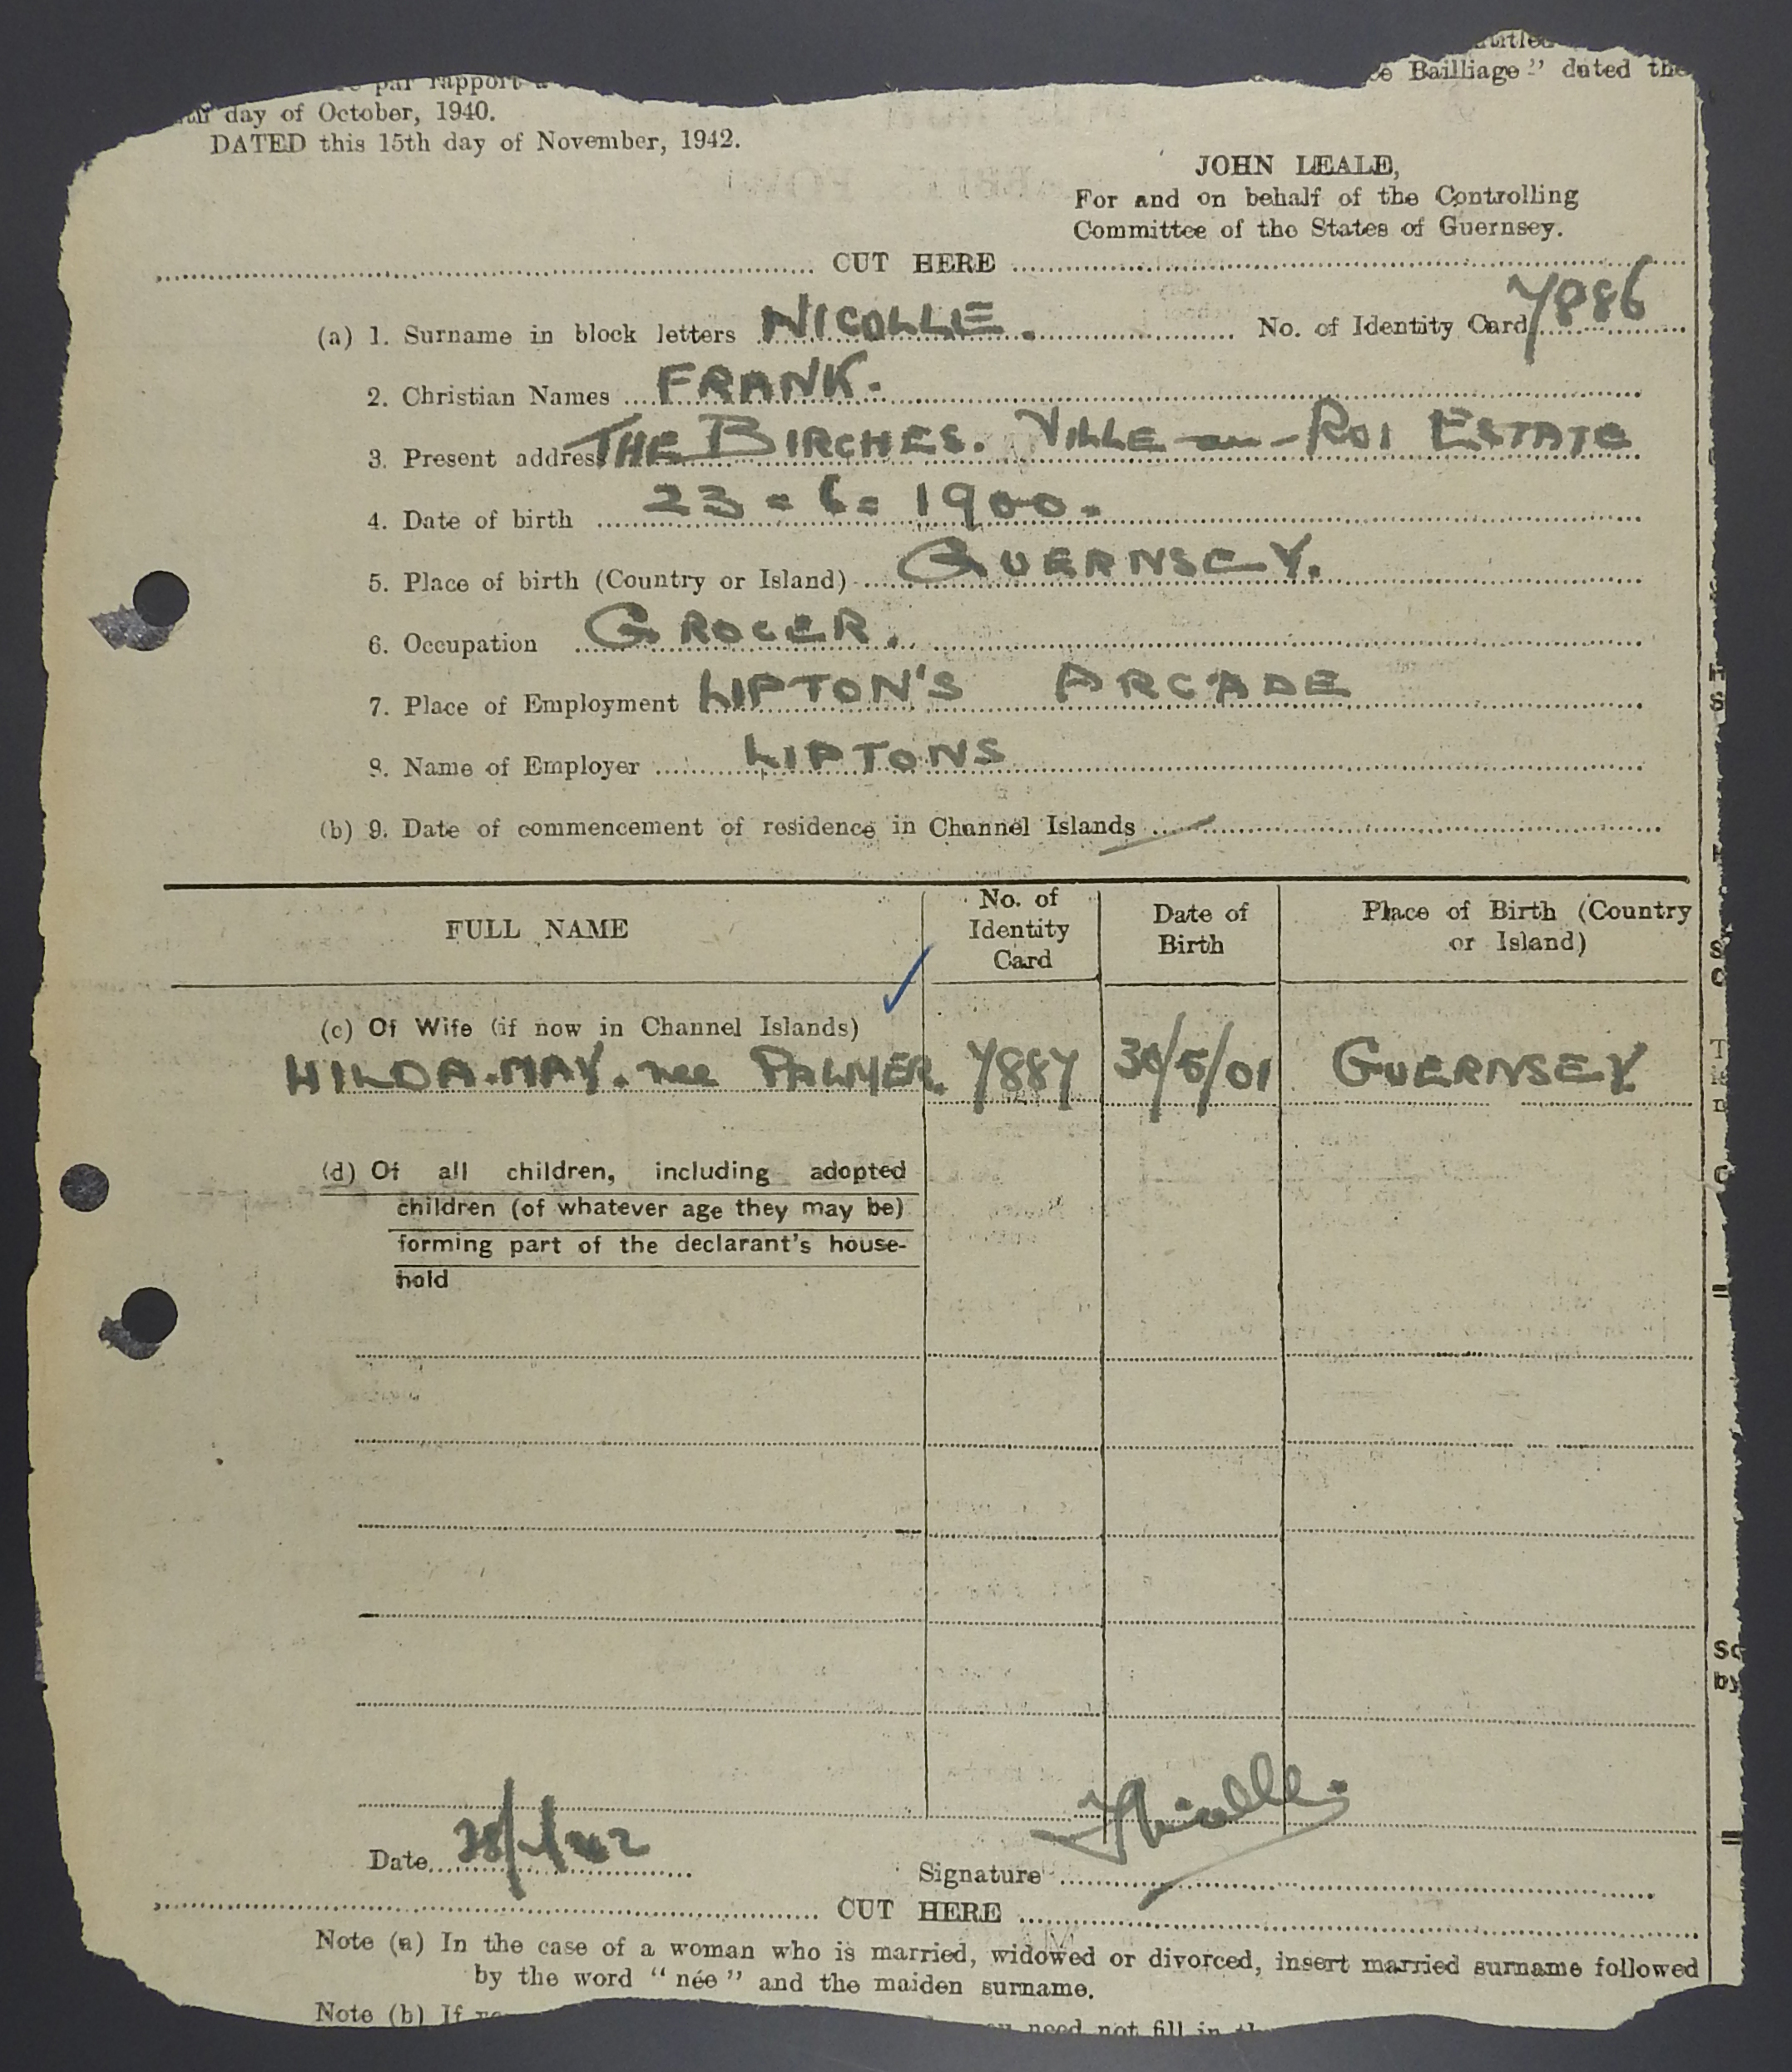 titled
par rapport
ce Bailliage" dated the
th day of October, 1940.
DATED this 15th day of November, 1942.
JOHN LEALE,
For and on behalf of the Controlling
Committee of the States of Guernsey.
CUT HERE
(a) 1. Surname in block letters NICOLLE. No. of Identity Card 7886
2. Christian Names FRANK.
3. Present address THE BIRCHES. VILLE au ROI ESTATE
4. Date of birth 23 = 6 = 1900.
5. Place of birth (Country or Island) GUERNSEY.
6. Occupation GROCER.
7. Place of Employment LIPTON'S ARCADE
8. Name of Employer LIPTONS
(b) 9. Date of commencement of residence in Channel Islands
FULL NAME
No. of Identity Card
Date of Birth
Place of Birth (Country or Island)
(c) Of Wife (if now in Channel Islands)
HILDA. MAY. nee PALMER. 7887 30/5/01 GUERNSEY
(d) Of all children, including adopted
children (of whatever age they may be)
forming part of the declarant's house-
hold
Date 28/ /42
Signature FNicolle
CUT HERE
Note (a) In the case of a woman who is married, widowed or divorced, insert married surname followed
by the word "née" and the maiden surname.
Note (b) If need not fill in